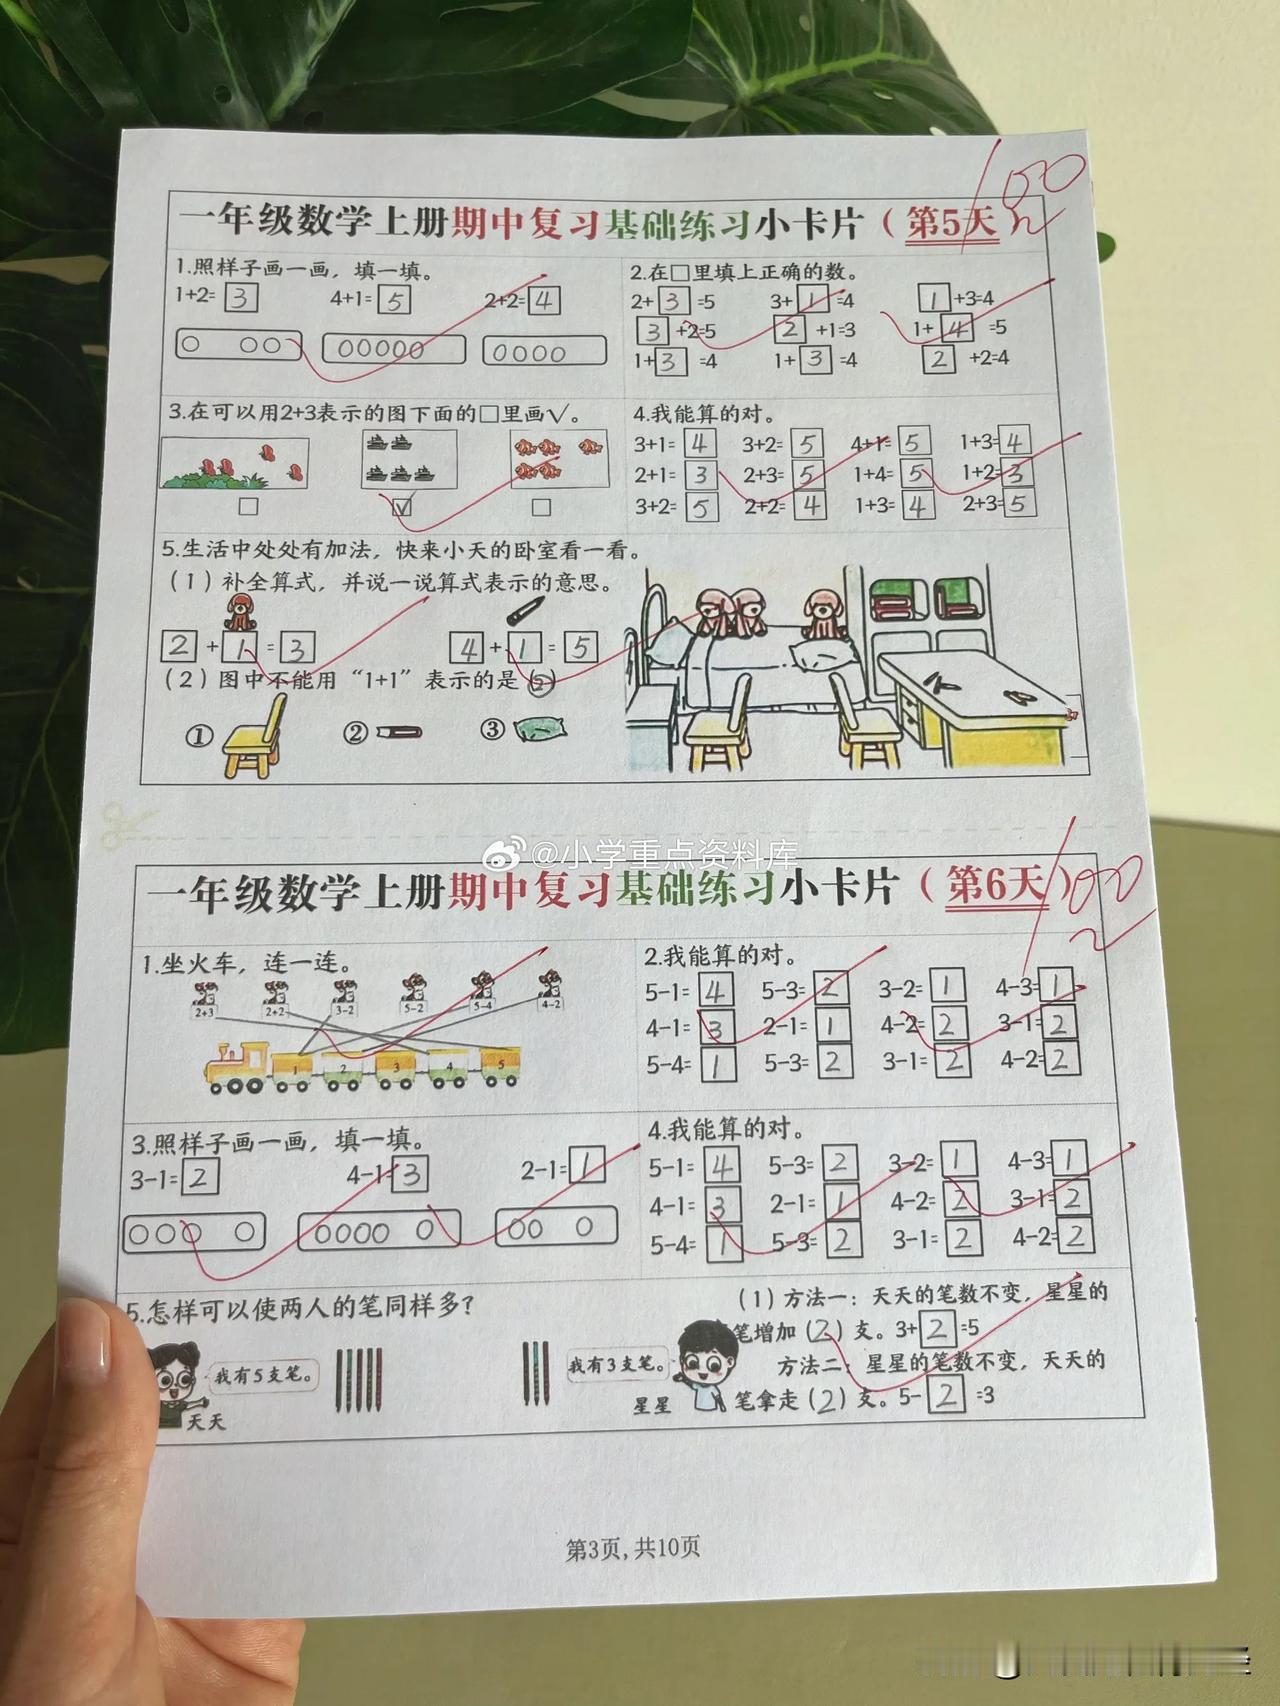 100
一年级数学上册期中复习基础练习小卡片（第5天）
1.照样子画一画，填一填。
1+2=3 4+1=5 2+2=4
2.在□里填上正确的数。
2+3=5 3+1=4 1+3=4
3+2=5 2+1=3 1+4=5
1+3=4 1+3=4 2+2=4
3.在可以用2+3表示的图下面的□里画√。
√
4.我能算的对。
3+1=4 3+2=5 4+1=5 1+3=4
2+1=3 2+3=5 1+4=5 1+2=3
3+2=5 2+2=4 1+3=4 2+3=5
5.生活中处处有加法，快来小天的卧室看一看。
（1）补全算式，并说一说算式表示的意思。
2+1=3 4+1=5
（2）图中不能用“1+1”表示的是（②）
① ② ③
@小学重点资料库
100
一年级数学上册期中复习基础练习小卡片（第6天）
1.坐火车，连一连。
2+3 2+2 3-2 5-2 5-4 4-2
1 2 3 4 5
2.我能算的对。
5-1=4 5-3=2 3-2=1 4-3=1
4-1=3 2-1=1 4-2=2 3-1=2
5-4=1 5-3=2 3-1=2 4-2=2
3.照样子画一画，填一填。
3-1=2 4-1=3 2-1=1
4.我能算的对。
5-1=4 5-3=2 3-2=1 4-3=1
4-1=3 2-1=1 4-2=2 3-1=2
5-4=1 5-3=2 3-1=2 4-2=2
5.怎样可以使两人的笔同样多？
我有5支笔。
天天
我有3支笔。
星星
（1）方法一：天天的笔数不变，星星的
笔增加（2）支。3+2=5
方法二：星星的笔数不变，天天的
笔拿走（2）支。5-2=3
第3页，共10页